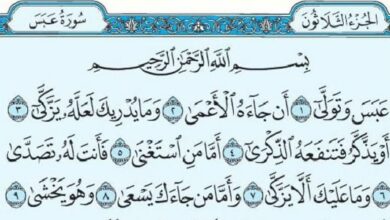 الجُزْءُ الثَّلَاثُونَ
سُورَةُ عَبَسَ
بِسْمِ اللَّهِ الرَّحْمَٰنِ الرَّحِيمِ
عَبَسَ وَتَوَلَّىٰٓ ١ أَن جَآءَهُ الْأَعْمَىٰ ٢ وَمَا يُدْرِيكَ لَعَلَّهُۥ يَزَّكَّىٰٓ ٣
أَوْ يَذَّكَّرُ فَتَنفَعَهُ الذِّكْرَىٰٓ ٤ أَمَّا مَنِ اسْتَغْنَىٰ ٥ فَأَنتَ لَهُۥ تَصَدَّىٰ
٦ وَمَا عَلَيْكَ أَلَّا يَزَّكَّىٰ ٧ وَأَمَّا مَن جَآءَكَ يَسْعَىٰ ٨ وَهُوَ يَخْشَىٰ ٩